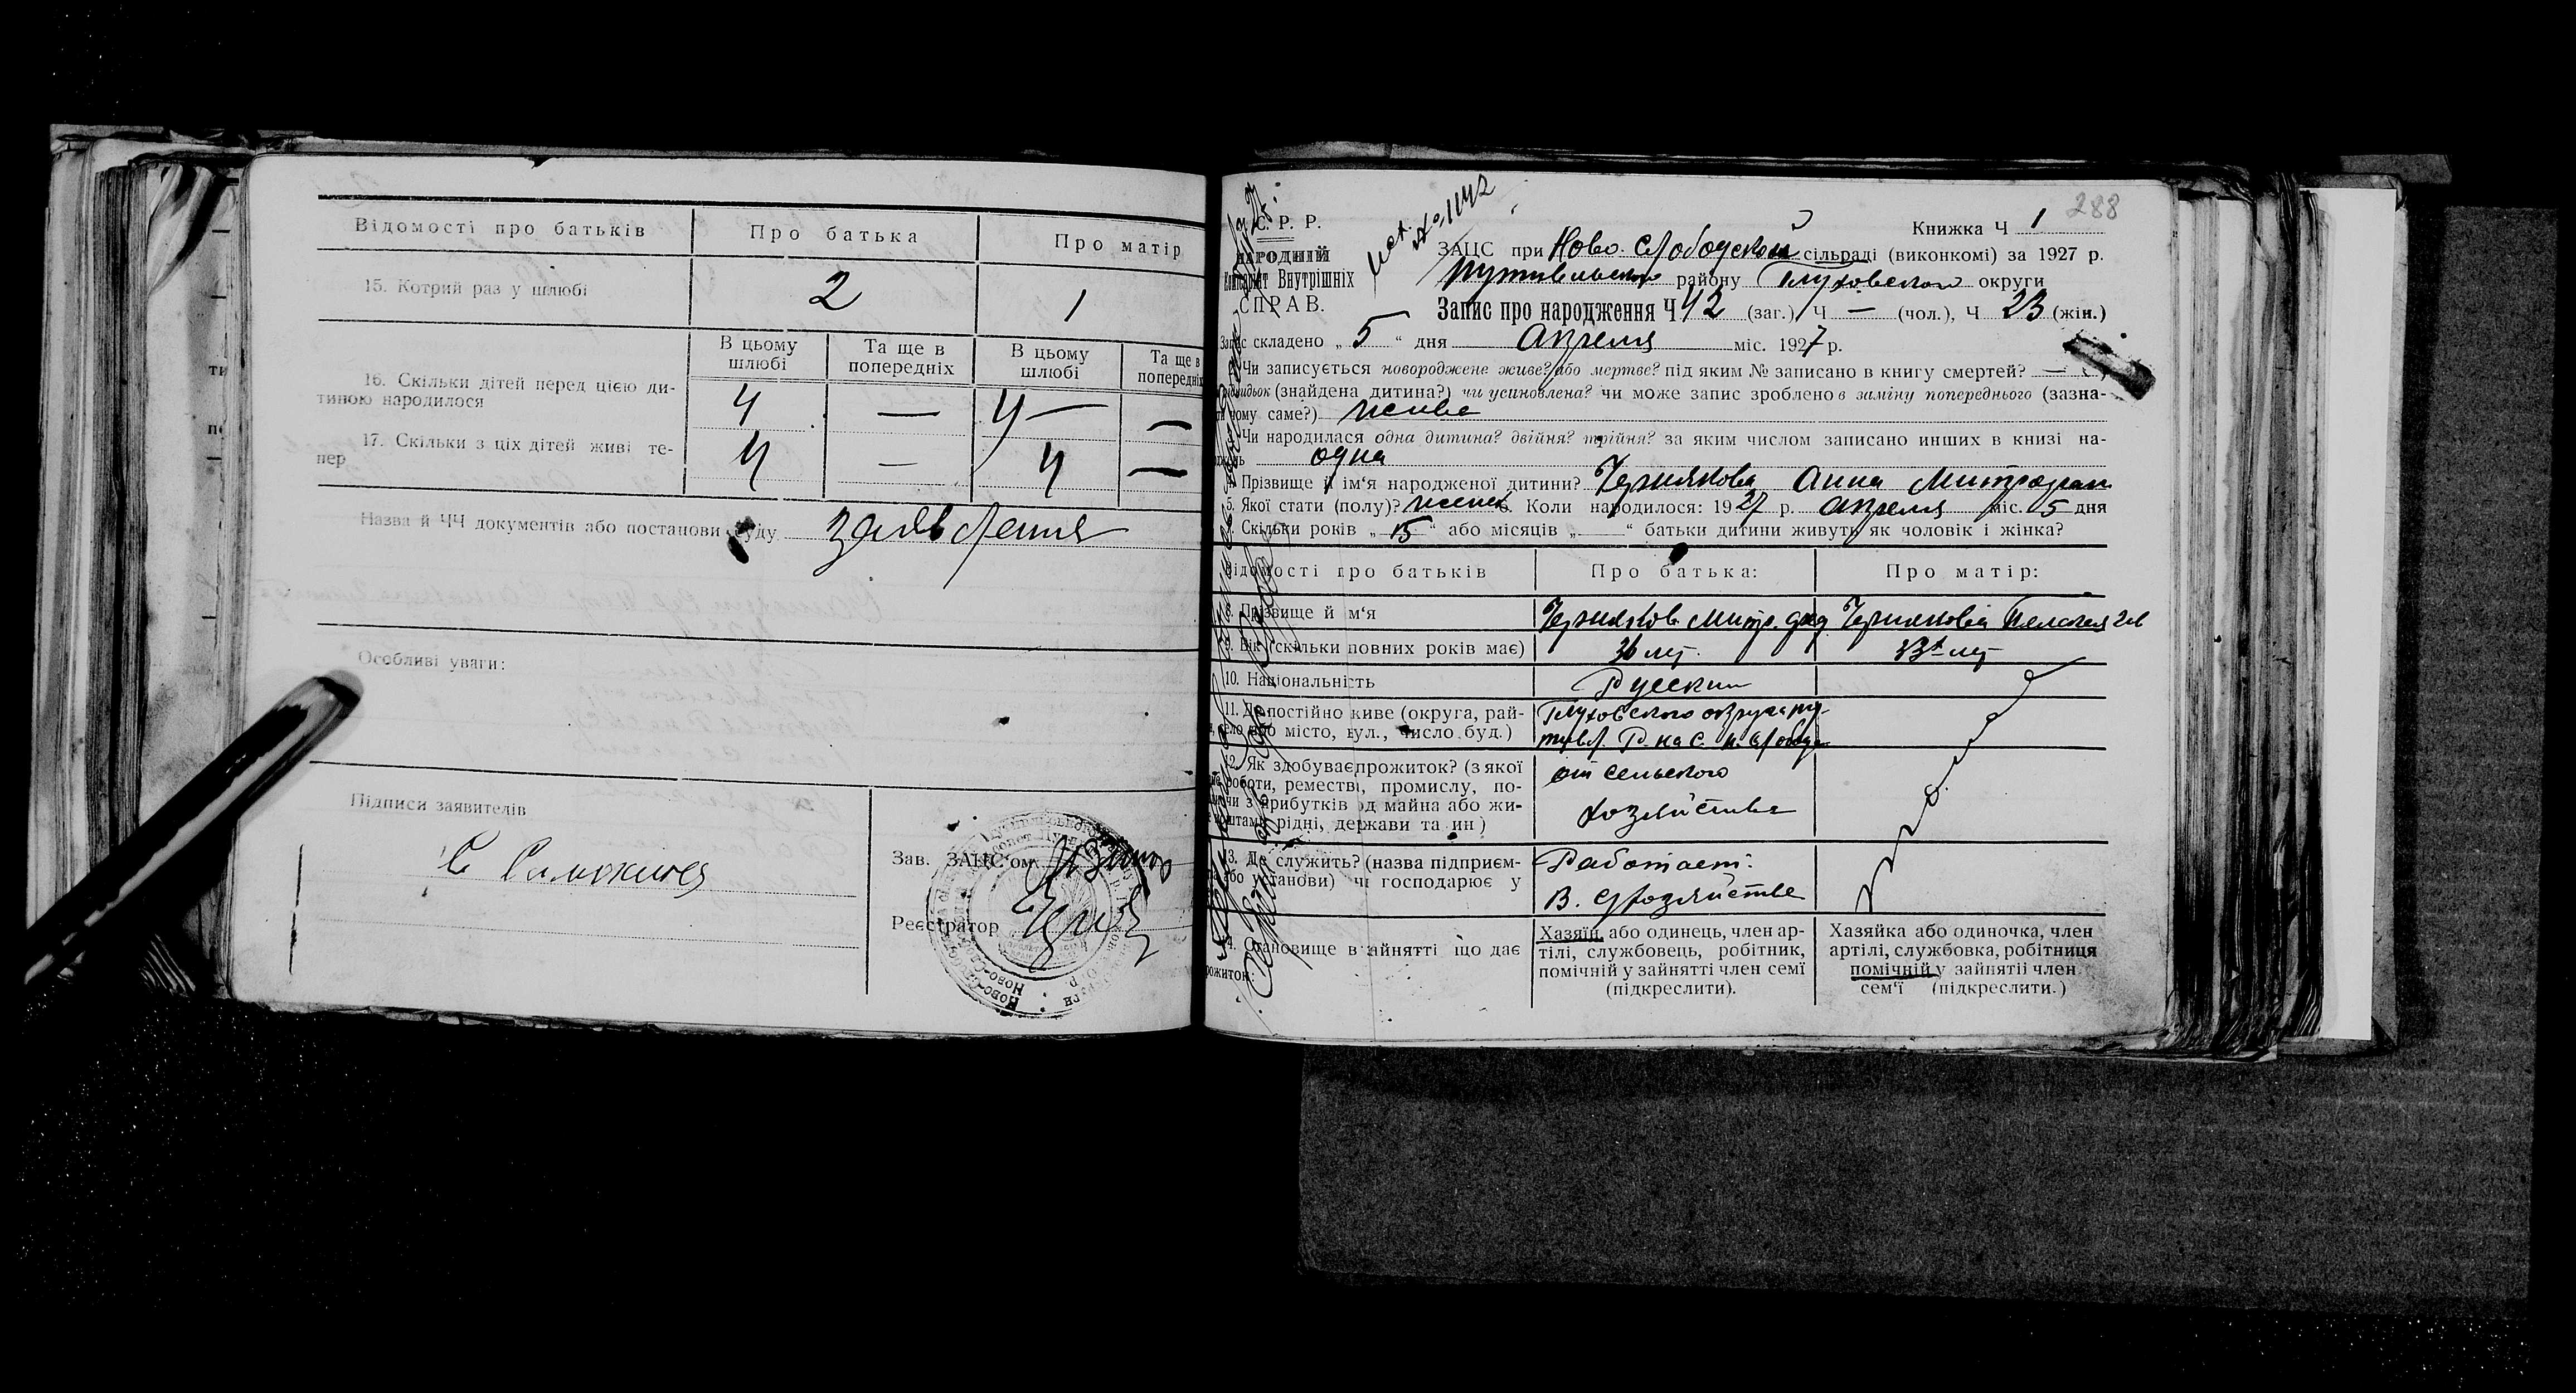 Відомості про батьків
Про батька
Про матір
15. Котрий раз у шлюбі
2
1
В цьому шлюбі
Та ще в попередніх
В цьому шлюбі
Та ще в попередніх
16. Скільки дітей перед цією ди-
тиною народилося
4
—
4 —
—
17. Скільки з ціх дітей живі те-
пер
4
—
4
—
Назва й ЧЧ документів або постанови суду
заявления
Особливі уваги:
Підписи заявителів
Зав. ЗАЦС'ом
Реєстратор
288
С. Р. Р.
НАРОДНІЙ
Внутрішніх
СПРАВ.
№ 1142
Книжка Ч 1
ЗАЦС при Ново Слободской сільраді (виконкомі) за 1927 р.
Путивльского району Глуховского округи
Запис про народження Ч 42 (заг.), Ч — (чол.), Ч 23 (жін.)
Запис складено „ 5 “ дня Апреля міс. 1927 р.
Чи записується новороджене живе? або мертве? під яким № записано в книгу смертей? —
(знайдена дитина?) чи усиновлена? чи може запис зроблено в заміну попереднього (зазна-
чому саме?) живе
Чи народилася одна дитина? двійня? трійня? за яким числом записано инших в книзі на-
одна
Прізвище й ім'я народженої дитини? Чернякова Анна Митрофан
5. Якої стати (полу)? женск 6. Коли народилося: 1927 р. апреля міс. 5 дня
Скільки років „ 15 “ або місяців „ — “ батьки дитини живуть як чоловік і жінка?
Відомості про батьків
Про батька:
Про матір:
8. Прізвище й м'я
Черняков Митр.
Чернякова Пелагея
9. Вік (скільки повних років має)
36 лет
33 лет
10. Національність
Русский
11. Де постійно живе (округа, рай-
село або місто, вул., число буд.)
Глуховского округа Пу-
тивл. Р. на С. Н. Слобода
12. Як здобуває прожиток? (з якої
роботи, реместві, промислу, по-
чи з прибутків од майна або жи-
рідні, держави та ин)
от сельского
хозяйства
13. Де служить? (назва підприєм-
або установи) чи господарює у
Работает
в. с/хозяйстве
14. Становище в зайнятті що дає
прожиток:
Хазяїн, або одинець, член ар-
тілі, службовець, робітник,
помічній у зайнятті член семї
(підкреслити).
Хазяйка або одиночка, член
артілі, службовка, робітниця
помічній у зайнятії член
сем'ї (підкреслити.)